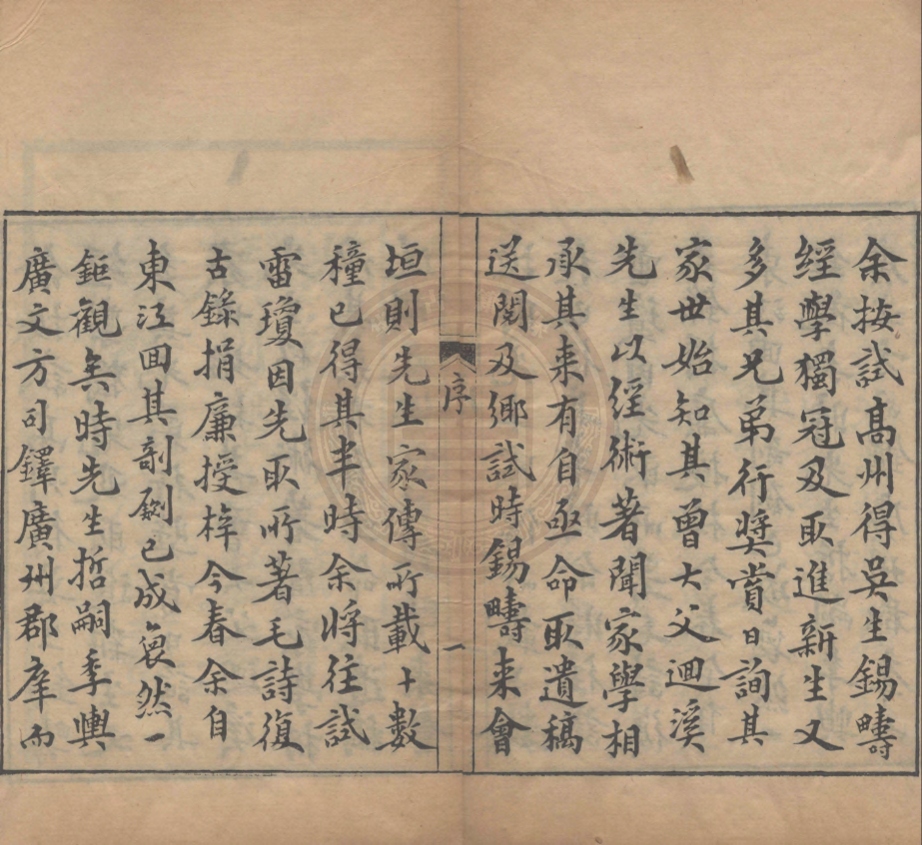 余按試髙州得吳生錫疇
經學獨冠及取進新生又
多其兄弟行奬賞日詢其
家世始知其曾大父迴溪
先生以經術著聞家學相
承其来有自亟命取遺稿
送閱及鄉試時錫疇来會
序
一
垣則先生家傳所載十數
種已得其半時余將往試
雷瓊因先取所著毛詩復
古錄捐廉授梓今春余自
東江回其剞劂已成裒然一
鉅觀矣時先生哲嗣季輿
廣文方司鐸廣州郡庠而